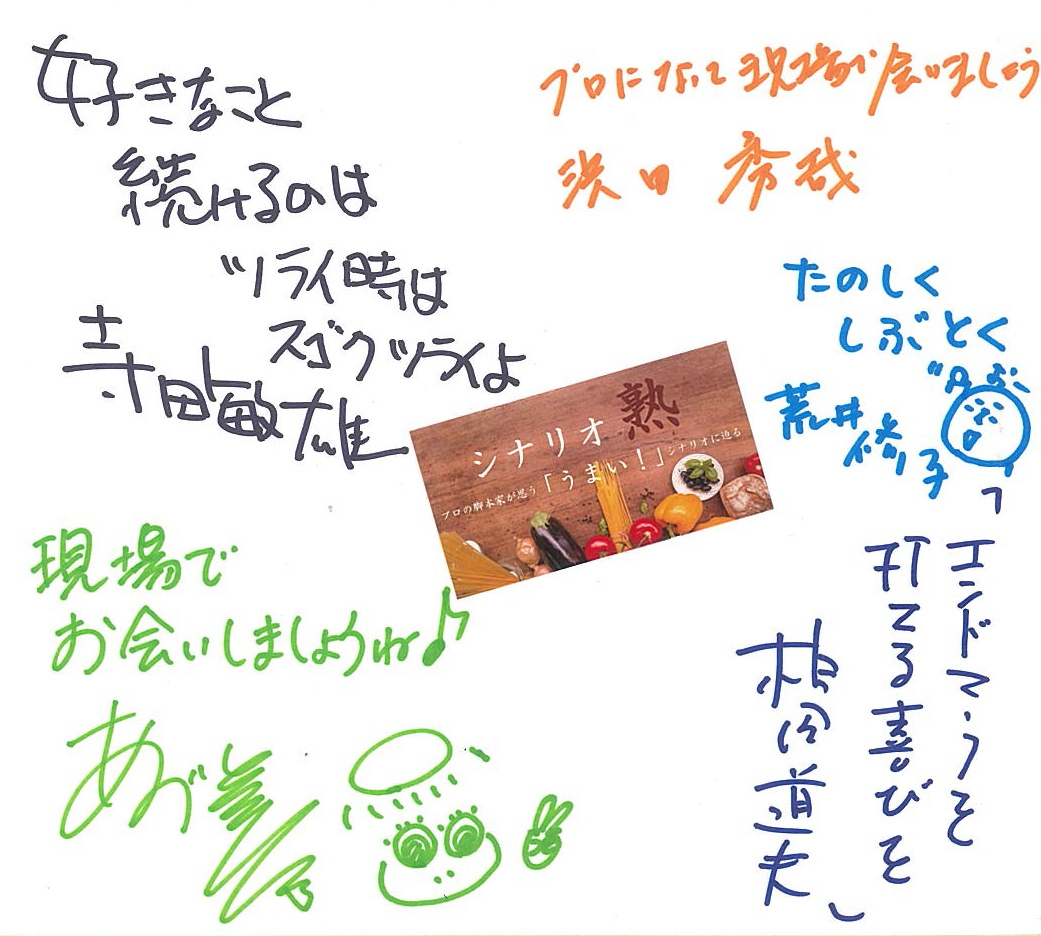 好きなこと
続けるのは
ツライ時は
スゴクツライよ
寺田敏雄
プロになって現場で会いましょう
浜田 秀哉
たのしく
しぶとく
荒井修子
シナリオ 熟
プロの脚本家が思う「うまい！」シナリオに迫る
現場で
お会いしましょうね♪
あべ美
「エンドマークを
打てる喜びを」
柏田道夫